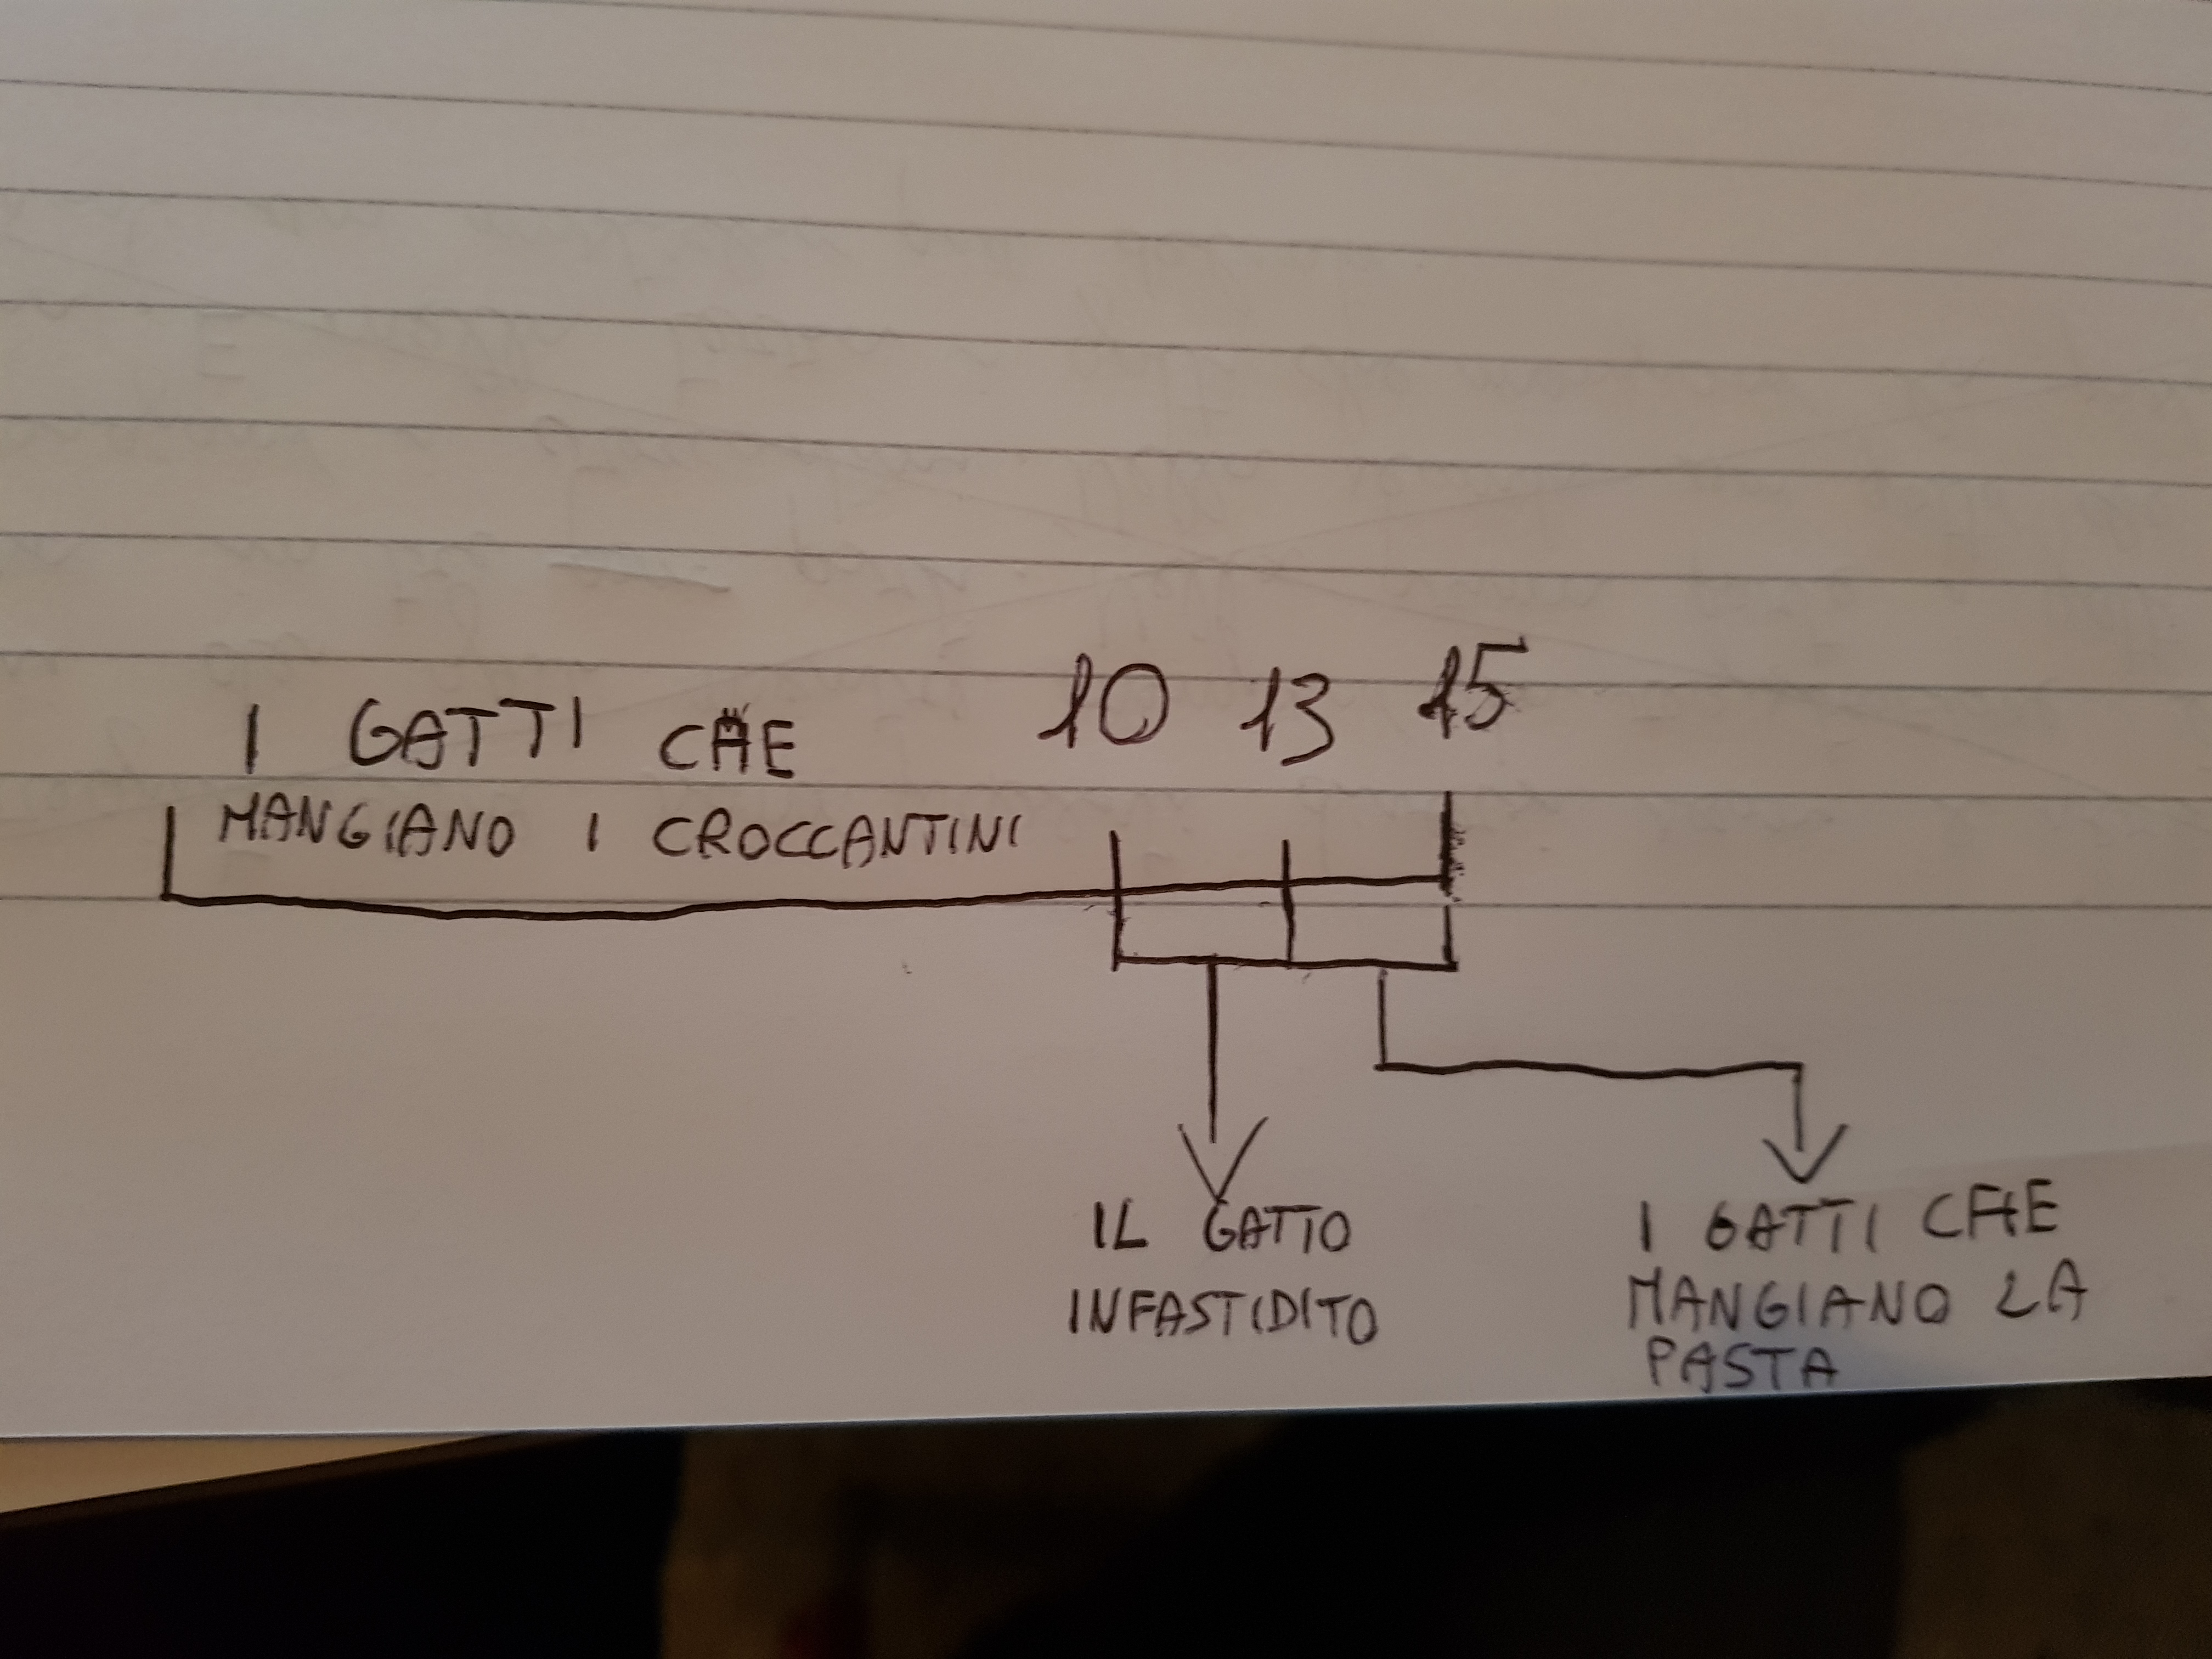 10 13 15
I GATTI CHE
MANGIANO I CROCCANTINI
IL GATTO
INFASTIDITO
I GATTI CHE
MANGIANO LA
PASTA